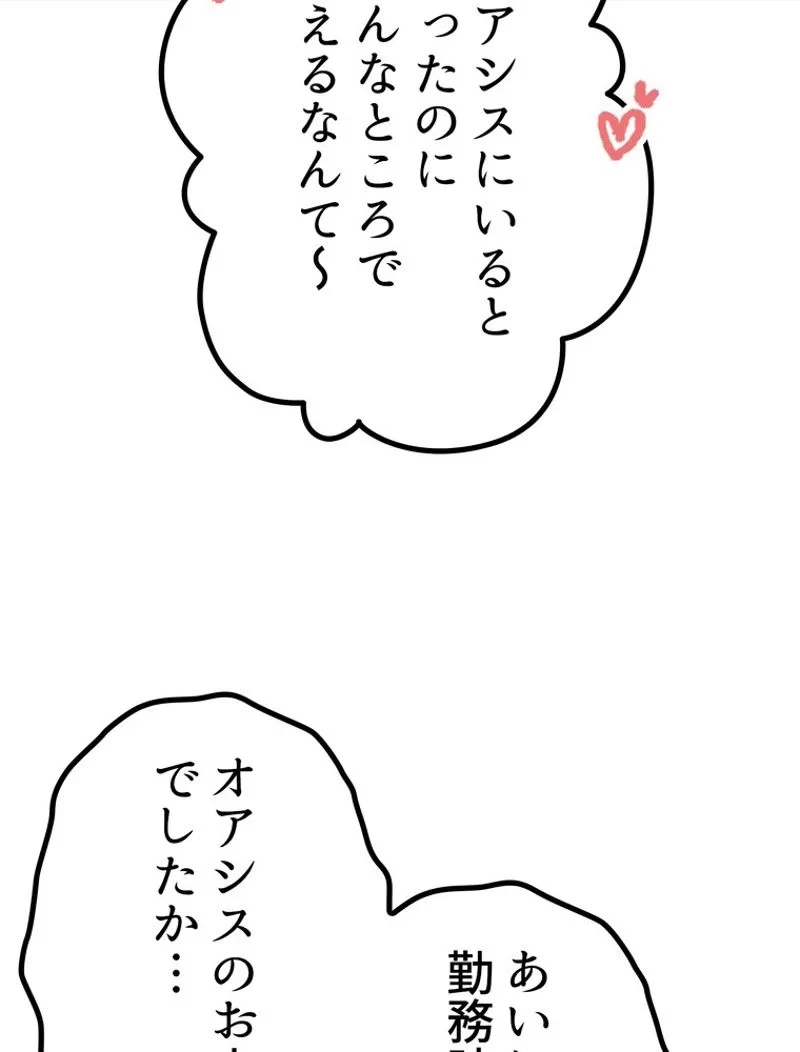 アシスにいると
ったのに
んなところで
えるなんて〜
あい
勤務
オアシスのお
でしたか…